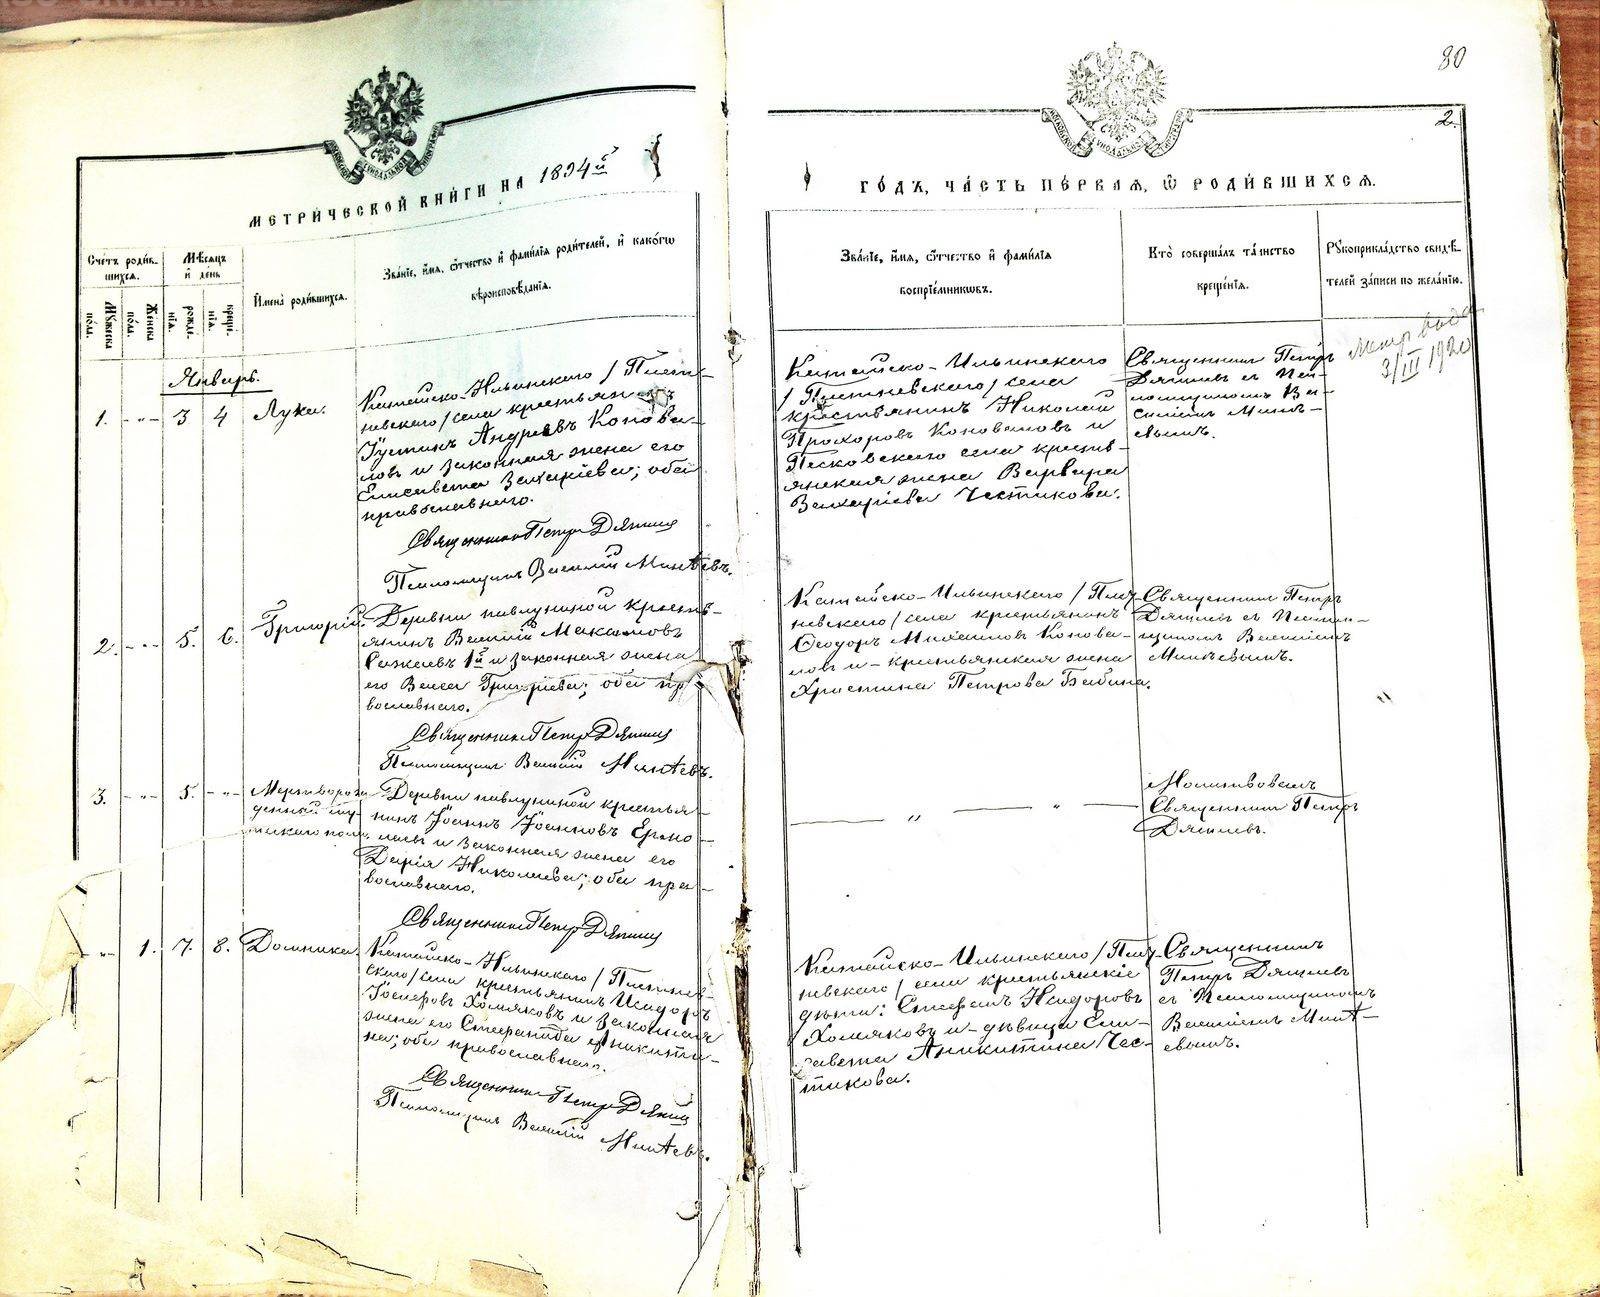 80
2.
МЕТРИ́ЧЕСКОЙ КНИ́ГИ НА 1894й
ГО́ДЪ, ЧА́СТЬ ПЕ́РВАѦ, Ѡ РОДИ́ВШИХСѦ.
Сче́тъ роди́в-
шихсѧ.
Мꙋ́жеска по́ла.
Же́нска по́ла.
Мѣ́сѧцъ
и҆ де́нь
рожде́-
нїѧ.
креще́-
нїѧ.
И҆мена̀ роди́вшихсѧ.
Зва́нїе, и҆́мѧ, ѻ҆́тчество и҆ фами́лїѧ роди́телей, и҆ како́гѡ
вѣроисповѣ́данїѧ.
Зва́нїе, и҆́мѧ, ѻ҆́тчество и҆ фами́лїѧ
воспрїе́мникѡвъ.
Кто̀ соверша́лъ та́инство
креще́нїѧ.
Рꙋкоприкла́дство свидѣ́-
телей за́писи по жела́нїю.
Январь.
1. -"- 3 4 Лука.
Катайско-Ильинскаго /Плот-
невскаго/ села крестьянинъ
Іустинъ Андреевъ Конова-
ловъ и законная жена его
Елисавета Захаріева; оба
православнаго.
Священникъ Петръ Дягилевъ
Псаломщикъ Василій Минѣевъ.
Катайско-Ильинскаго
крестьянинъ Николай
Прохоровъ Коноваловъ и
Песковскаго села кресть-
янская жена Варвара
Захаріева Честикова.
Священникъ Петръ
Дягилевъ съ Пса-
ломщикомъ Ва-
силіемъ Минѣ-
евымъ.
3/III 1920
2. -"- 5. 6. Григорій.
Деревни павлуниной кресть-
янинъ Василій
1й и законная жена
его Васса Григоріева; оба пра-
вославнаго.
Священникъ Петръ Дягилевъ
Псаломщикъ Василій Минѣевъ.
Катайско-Ильинскаго
невскаго/ села крестьянинъ
Ѳеодоръ Михаиловъ Конова-
ловъ и крестьянская жена
Христина Петрова Бабина.
Священникъ Петръ
Дягилевъ съ Псалом-
щикомъ Василіемъ
Минѣевымъ.
"
3. -"- 5. -"- Мертворож
денный му-
жескаго пола.
Деревни павлуниной крестья-
нинъ Іоаннъ Іоанновъ Ермо-
лаевъ и законная жена его
Дарія Николаева; оба пра-
вославнаго.
Священникъ Петръ Дягилевъ
— " — " —
Молитвовалъ
Священникъ Петръ
Дягилевъ.
-"- 1. 7. 8. Домника.
Катайско-Ильинскаго
скаго/ села крестьянинъ Исидоръ
Хомяковъ и законная
жена его Стефанида Аникити-
на; оба православнаго.
Священникъ Петръ Дягилевъ
Псаломщикъ Василій Минѣевъ.
Катайско-Ильинскаго
невскаго/ села крестьянскіе
дѣти: Стефанъ Исидоровъ
Хомяковъ и дѣвица Ели-
савета Аникитина Чес-
тикова.
Священникъ
Петръ Дягилевъ
съ Псаломщикомъ
Василіемъ Минѣ-
евымъ.